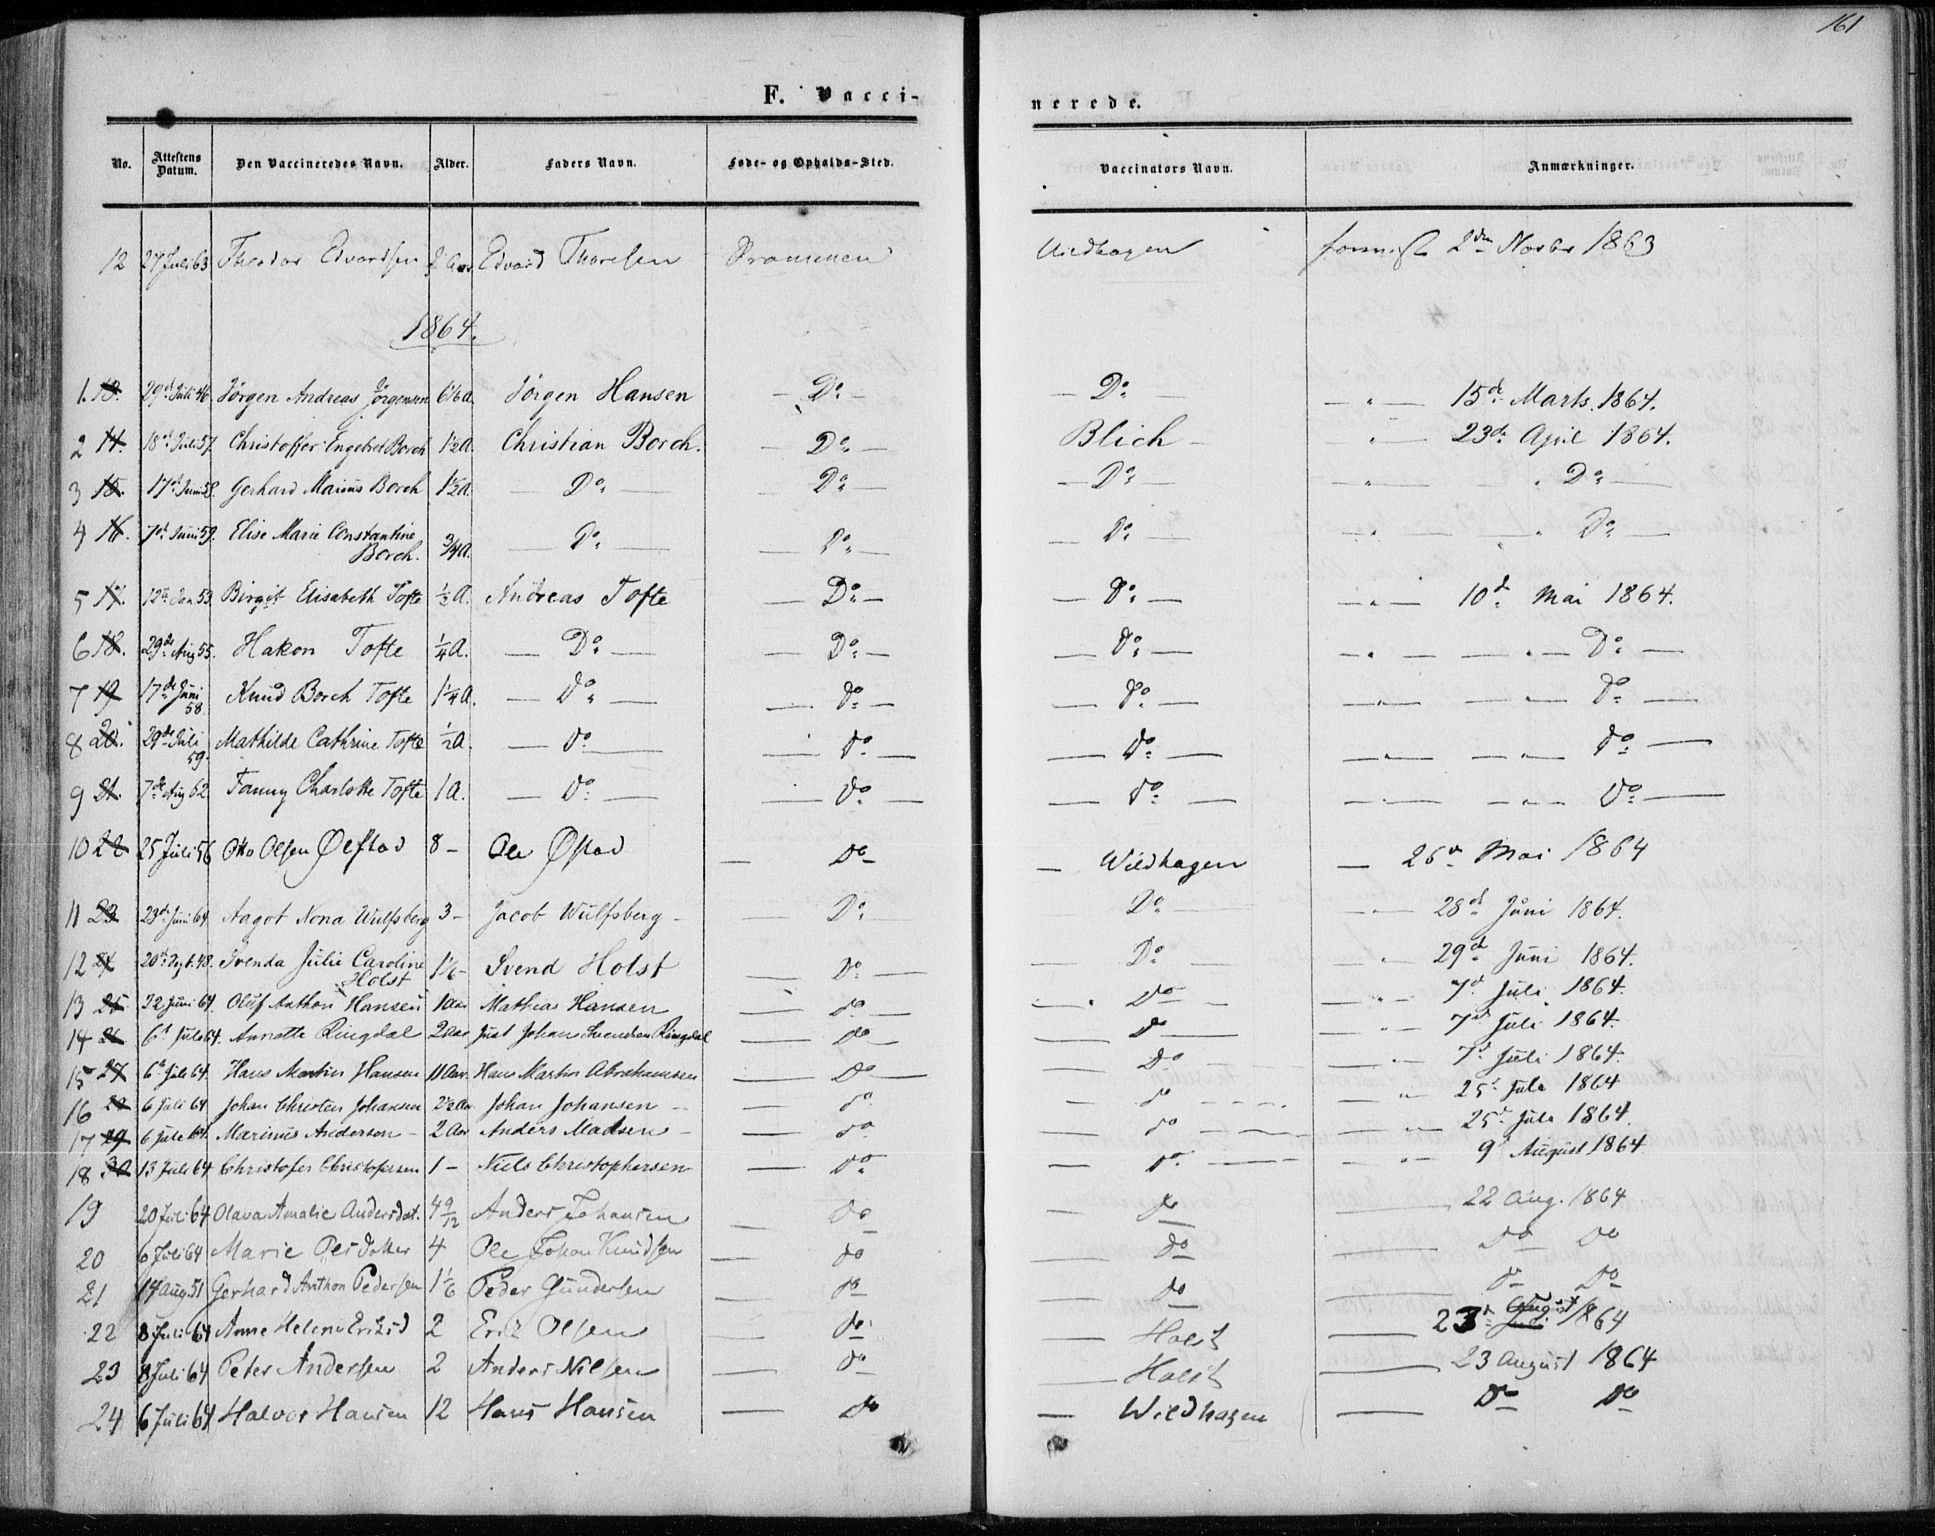 161
F. Vacci-
nerede.
No. Attestens Datum. Den Vaccineredes Navn. Alder. Faders Navn. Føde- og Opholds-Sted. Vaccinators Navn. Anmærkninger.
12 27 Juli 63 Theodor Edvardsen 2 Aar Edvard Thoresen Wildhagen 2den Novbr 1863
1864.
1. 13. 29de Juli 46. Jørgen Andreas Jørgensen 6 1/6 A. Jørgen Hansen — Do — — Do — — " — 15de Marts. 1864.
2 14. 18de Juli 57. Christoffer Engebret Borch 1½ A. Christian Borch. — Do — Blich — " — 23de April 1864.
3 15. 17de Juni 58. Gerhard Marius Borch 1½ A. — Do — — Do — — Do — — " — " Do —
4 16. 7de Juni 59. Elise Marie Constantine Borch. ¾ A. — Do — — Do — — Do — — " — " Do —
5 17. 12te Jan 53. Birgit Elisabeth Tofte ½ A. Andreas Tofte — Do — — Do — — " — 10de Mai 1864.
6 18. 29de Aug 55. Hakon Tofte ¼ A. — Do — — Do — — Do — — " — — " — Do —
7 19 17de Juni 58. Knud Borch Tofte 1¼ A. — Do — — Do — — Do — — " — — " — Do —
8 20. 29de Juli 59. Mathilde Cathrine Tofte ½ A. — Do — — Do — — Do — — " — — " — Do —
9 21. 7de Aug 62. Fanny Charlotte Tofte 1 A. — Do — — Do — — Do — — " — — " — Do —
10 22 25 Juli 56 Otto Olsen Ølstad 8 – Ole Østad — Do — Wildhagen — 26de Mai 1864
11 23 23de Juni 64 Aagot Nona Wulfsberg 3 – Jacob Wulfsberg – Do — Do — — " — 28de Juni 1864.
12 24 20de Sept. 48. Svenda Julie Caroline Holst 1 1/6 – Svend Holst — Do — — Do — — " — 29de Juni 1864.
13 25 22 Juni 64. Oluf Anthon Hansen 1 Aar Mathias Hansen — Do — — Do — — " — 7de Juli 1864.
14 26 6de Juli 64. Annette Ringdal 2 Aar Just Johan Ringdal — Do — — Do — — " — 7de Juli 1864.
15 27 6de Juli 64. Hans Martin Hansen 11 Aar. Hans Martin Abrahamsen — Do — — Do — — " — 7de Juli 1864.
16 28 6 Juli 64 Johan Christen Johansen 2½ Aar Johan Johansen — — Do — Do — — " — 25de Juli 1864
17 29 6 Juli 64. Marinus Andersen – 2 Aar Anders Madsen — — Do — Do — — " — 25de Juli 1864.
18 30 13 Juli 64 Christofer Christofersen 1 – Niels Christophersen — Do — — Do — — " — 9de August 1864
19 20 Juli 64 Olava Amalie Andersdat. 4 9/12 Anders Johansen — Do — Do — 22 Aug. 1864
20 6 Juli 64 Marie Olsdotter 4 Ole Johan Knudsen — Do — Do — Do Do
21 14 Aug. 51 Gerhard Anthon Pedersen 1 1/6 Peder Gundersen — Do — Do — Do Do
22 8 Juli 64 Anne Helene Eriksd 2 Erik Olsen — Do — Holst — 23de Juli August 1864
23 8 Juli 64 Peter Andersen 2 Anders Nilsen — Do — Holst — 23 August 1864
24 6 Juli 64 Halvor Hansen 12 Hans Hansen — Do — Wildhagen — Do Do